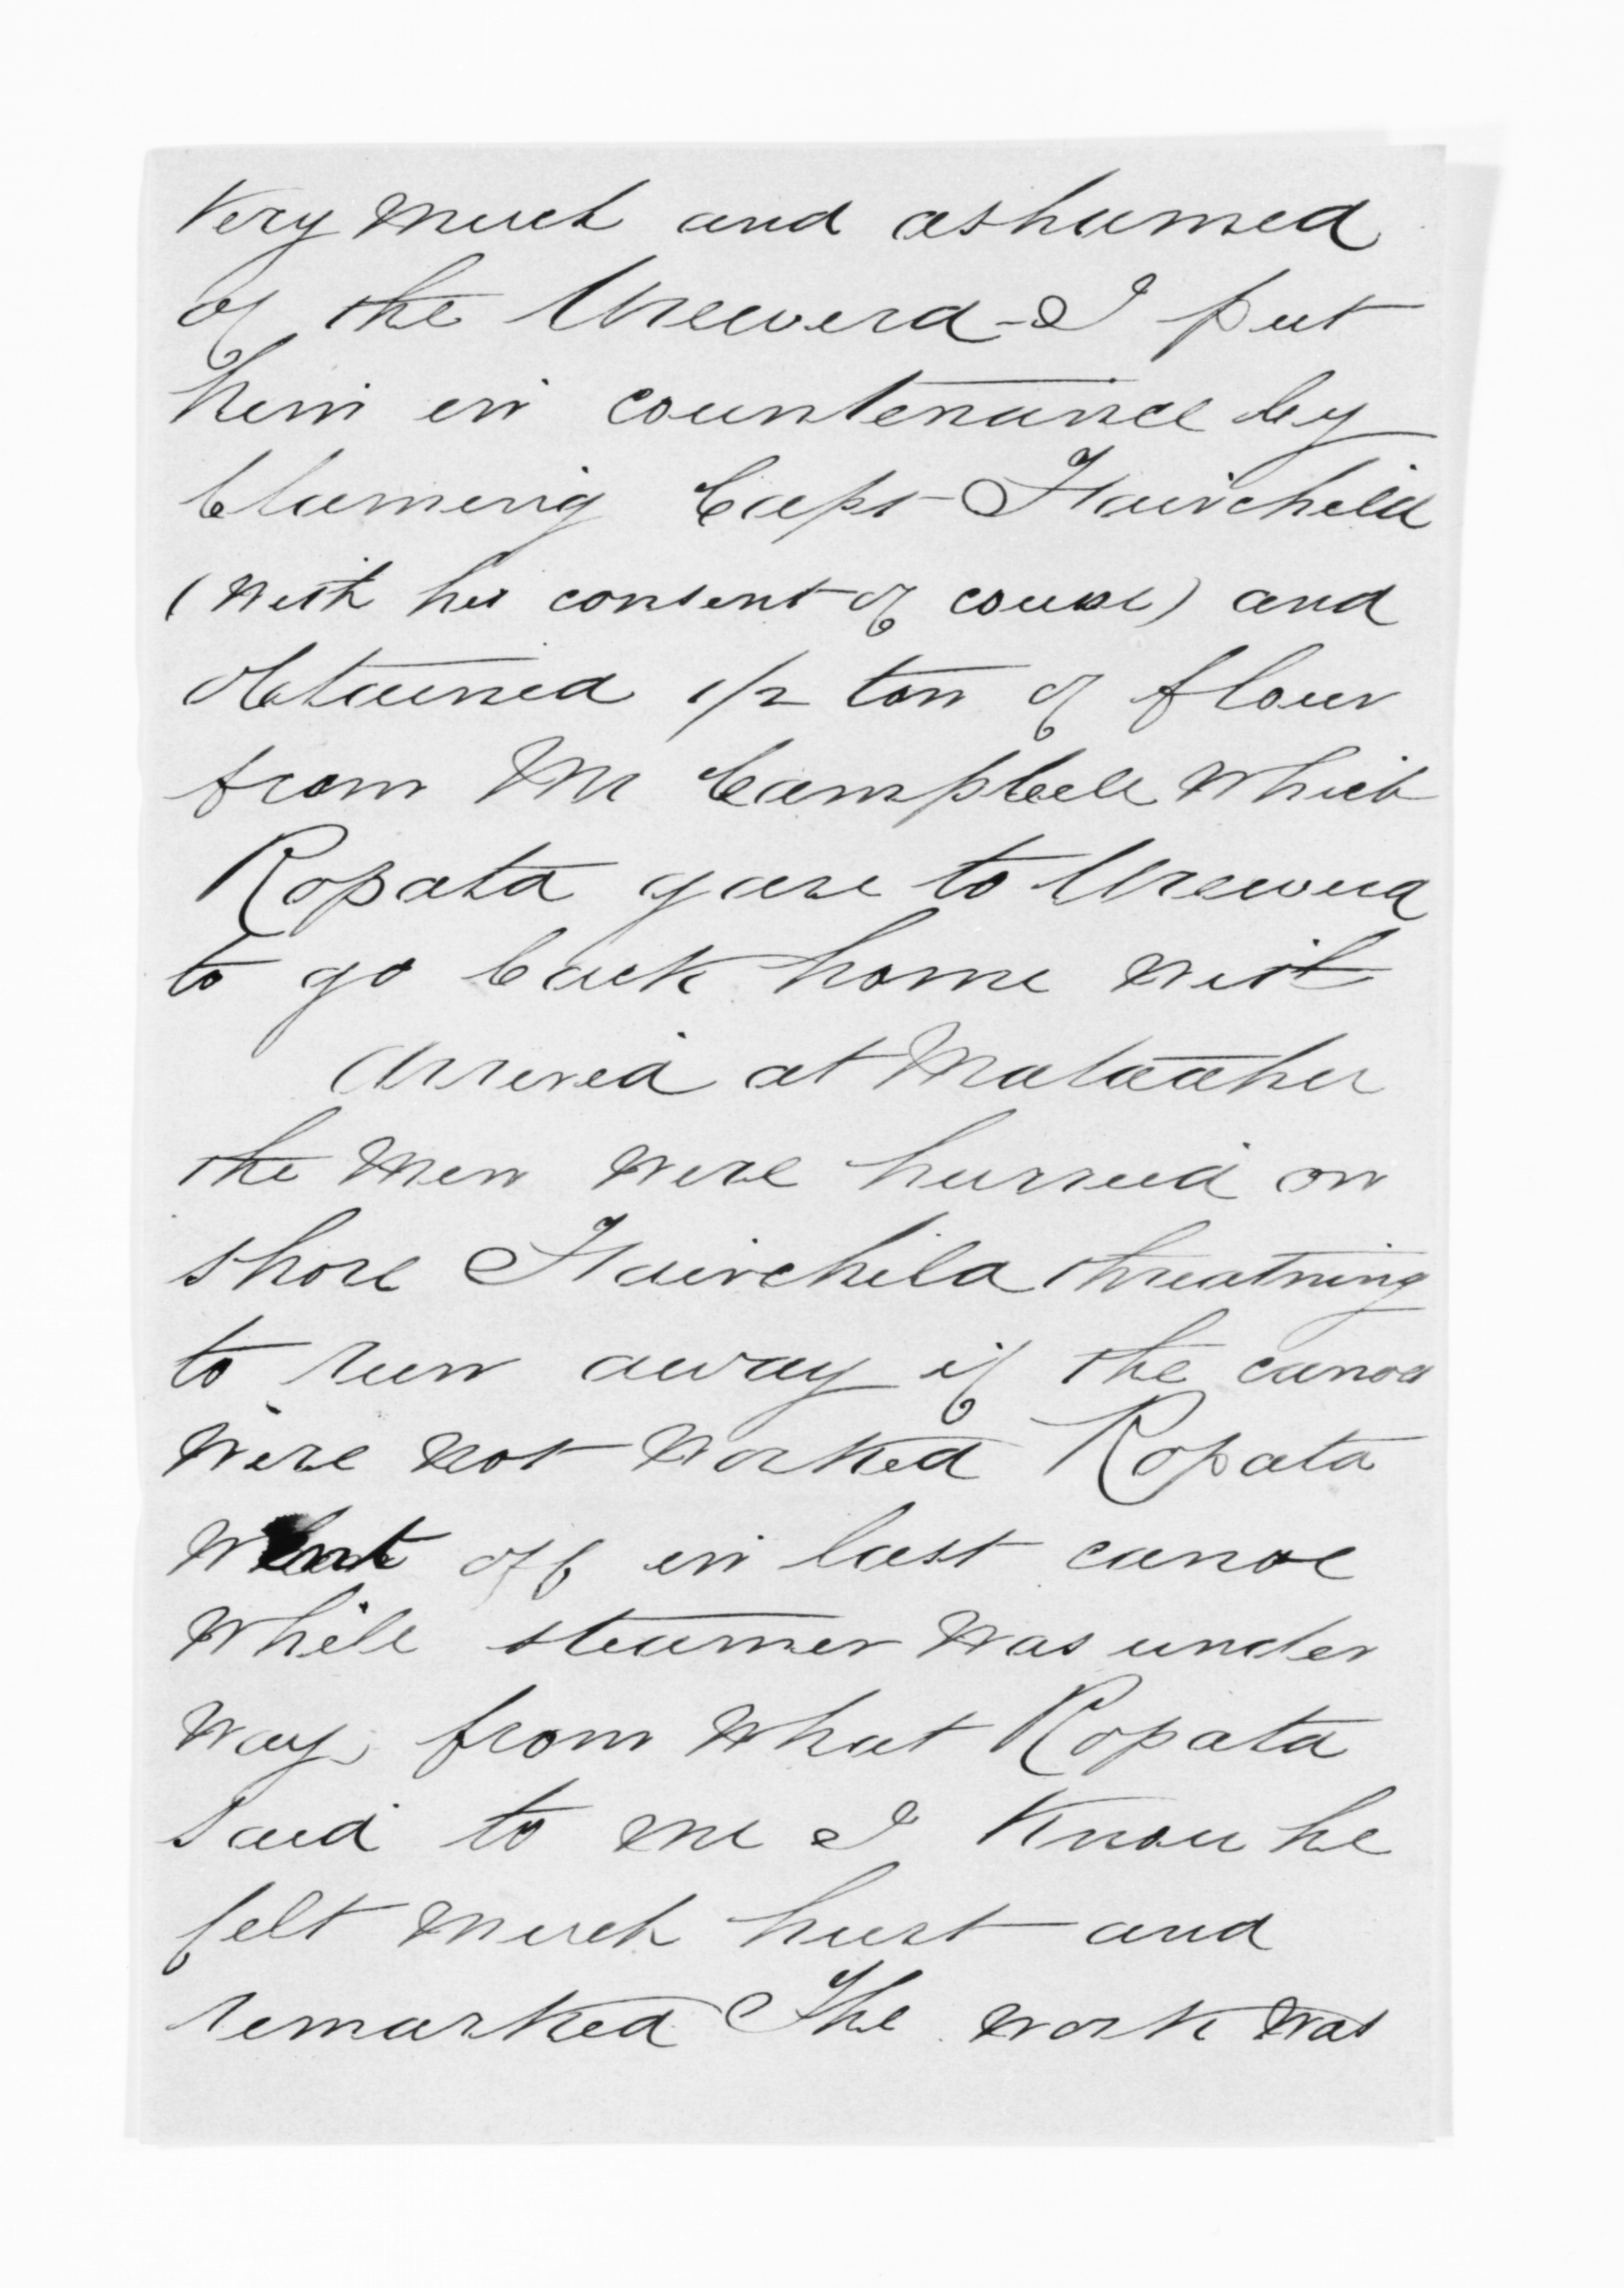 very much and ashamed
of the Urewera - I put
him in countenance by
blaming Capt Fairchild
(with his consent of couse) and
obtained 1/2 ton of flour
from Mr Campbell which
Ropata gave to Urewera
to go back home with
Arrived at Mataahu
the men were hurried on
shore Fairchild threatning
to run away if the canoes
were not worked Ropata
went off in last canoe
while steamer was under
way, from what Ropata
said to me I know he
felt much hurt and
remarked The work was